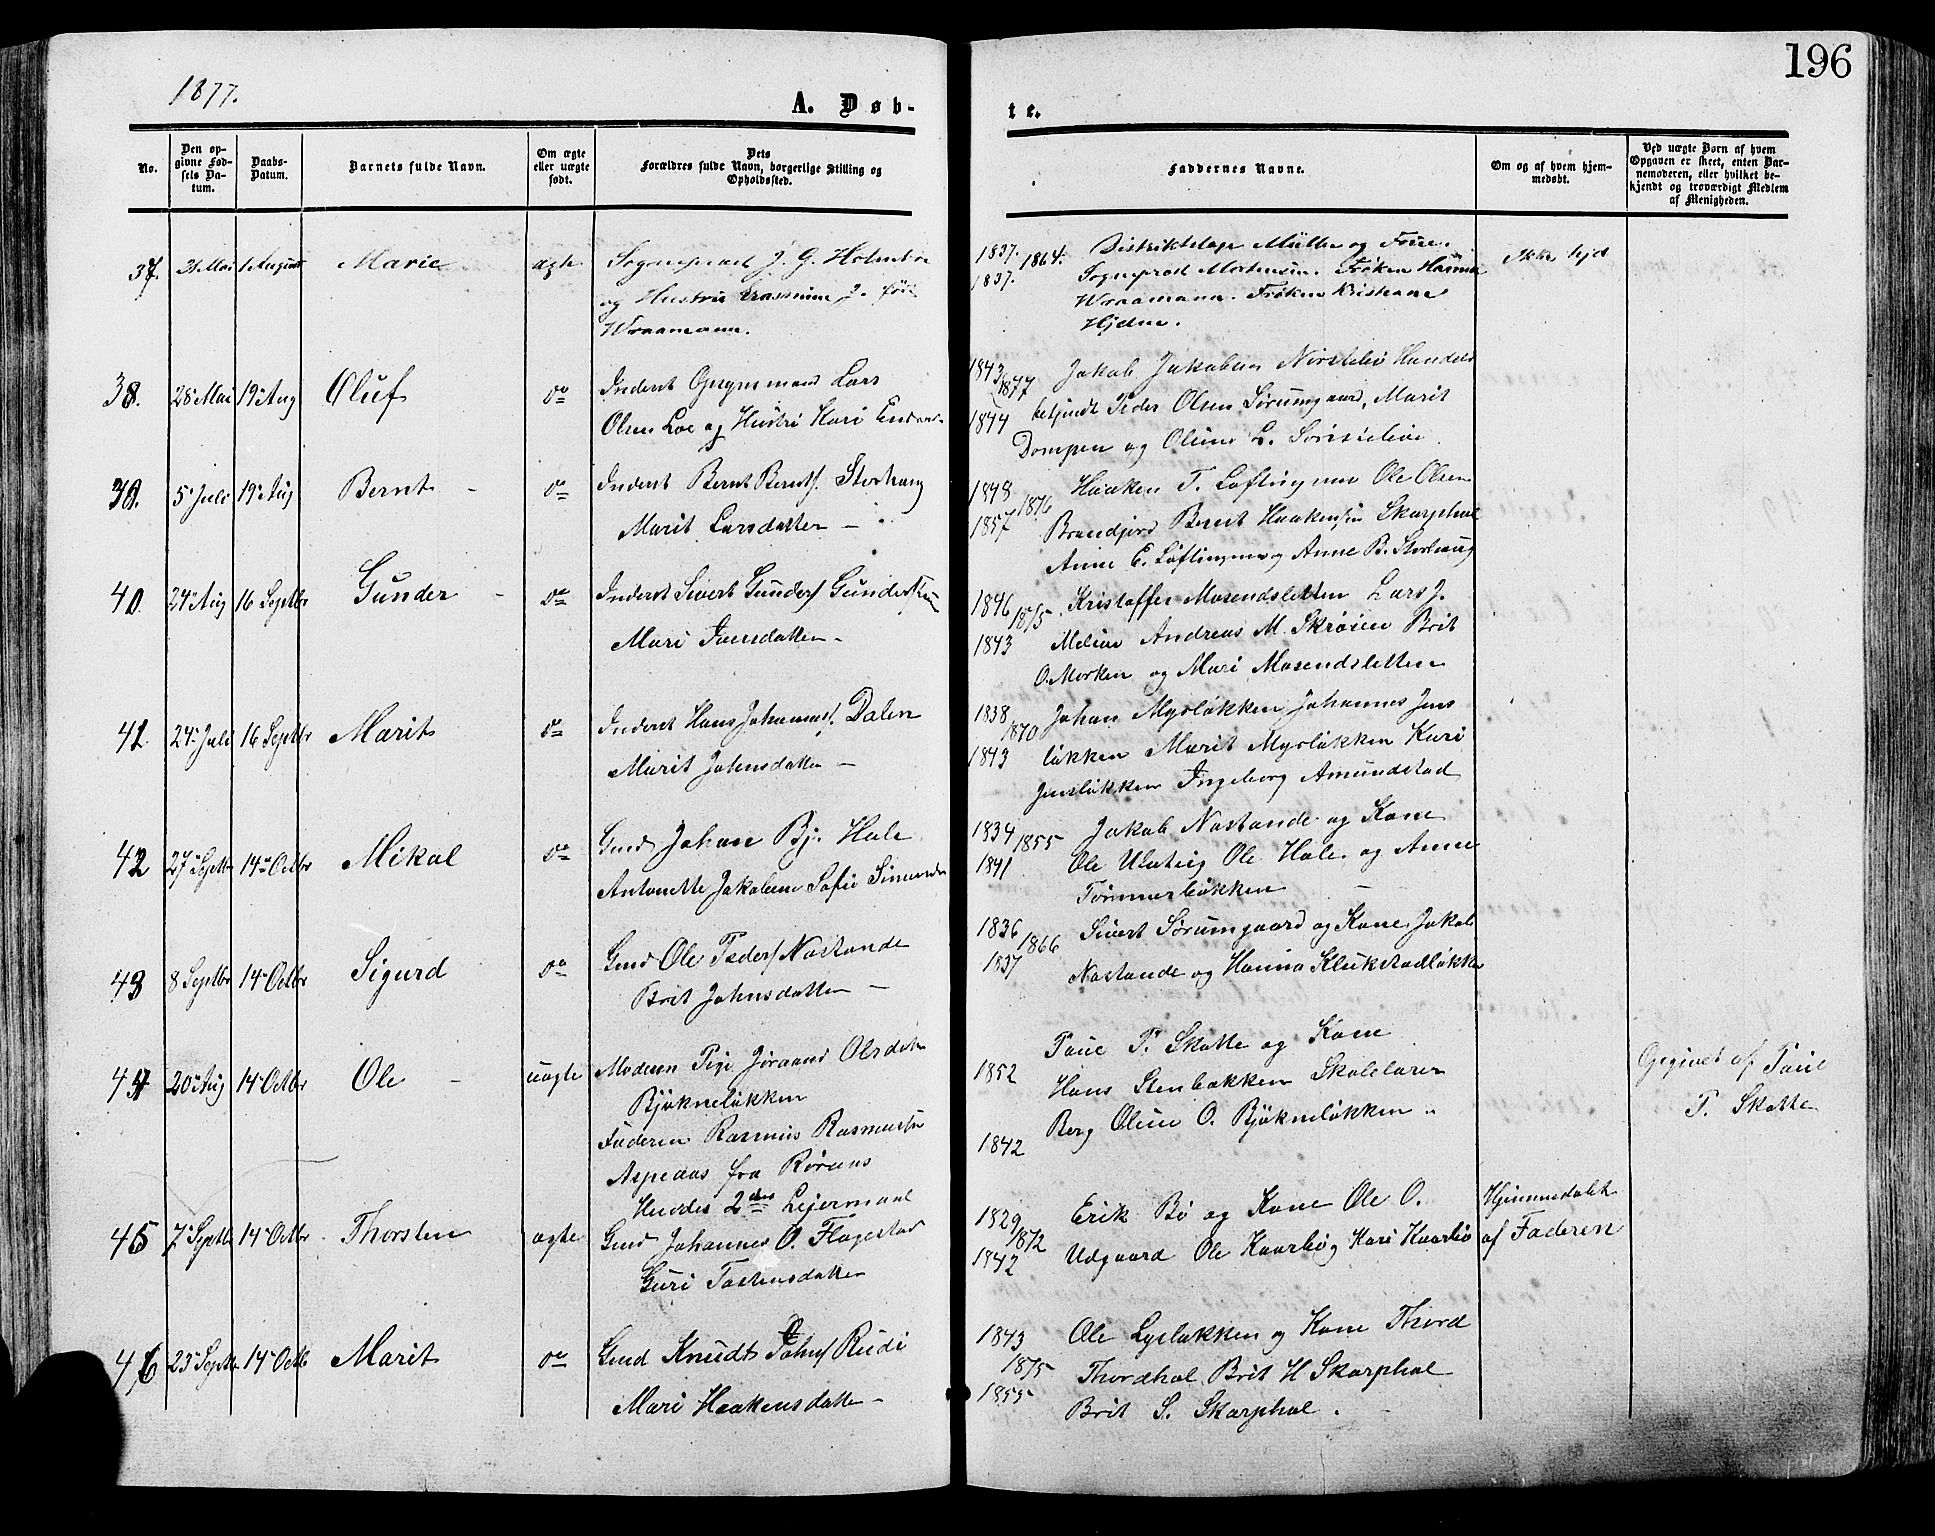 196
1877.
A. Døb-
te.
No.
Den op-
givne Fød-
sels Da-
tum.
Daabs-
Datum.
Barnets fulde Navn.
Om ægte
eller uægte
født.
Dets
Forældres fulde Navn, borgerlige Stilling og
Opholdssted.
Faddernes Navne.
Om og af hvem hjem-
medøbt.
Ved uægte Børn af hvem
Opgaven er skeet, enten Bar-
nemoderen, eller hvilket be-
kjendt og troværdigt Medlem
af Menigheden.
37. Mai 1 August Marie ægte Sogneprest J. G. Holmboe
og Hustru
Wraamann.
1837. 1864. Müller og Frue.
1837. Mortensen. Frøken
Wraamann. Frøken Kristiane
38. 28 Mai 19 Aug Oluf do Inderst Lars
Olsen Loe og Hustru Kari
1843 Jakob Jakobsen
1877
1844 Peder Olsen Sørumgaard, Marit
Dompen og Oline L.
39. 5 Juli 19 Aug Bernt do Inderst Bernt Bernts. Storhaug
Marit Larsdatter
1848 Haaken T. Løftingsmo Ole Olsen
1876
1857 Brandfjord Bernt Haakensen Skarphol
Anne E. Løftingsmo og Anne B. Storhaug
40. 24 Aug 16 Septbr Gunder do Inderst Sivert Gunders.
Mari Jonsdatter
1846 Kristoffer Mosendsletten Lars J.
1875
1843 Andreas M. Brit
O. Morken og Mari Mosendsletten
41. 24 Juli 16 Septbr Marit do Inderst Hans Johannes. Dalen
Marit Johnsdatter
1838 Johan Mysløkken Johannes Jens
1870
1843 løkken Marit Mysløkken Kari
Jensløkken Ingeborg Amundstad
42 27 Septbr 14 Octbr Mikal do Gmd Johan Bj. Hole
Antonette Jakobine Sofie
1834 Jakob Nostande og Kone
1855
1841 Ole Ole Hole og Anne
Tømmerløkken
43 8 Septbr 14 Octbr Sigurd do Gmd Ole Peders. Nostande
Brit Johnsdatter
1836 Sivert Sørumgaard og Kone, Jakob
1866
1837 Nostande og Hanna
44 20 Aug 14 Octbr Ole uægte Moderen Pige Jøraand Olsdatter
Bjøkneløkken
Faderen Rasmus Rasmussen
Aspeaas fra Røraas
Hendes 2det Leiermaal
Paul P. Skotte og Kone
1852 Hans Stenbakken Skolelærer
Berg Oline O. Bjøkneløkken
1842
Opgivet af Paul
P. Skotte
45 7 Septbr 14 Octbr Thorsten ægte Gmd Johannes O. Flagestad
Guri Tostensdatter
1829 Erik Bø og Kone Ole O.
1872
1842 Udgaard Ole Kaarbø og Kari Kaarbø
Hjemmedøbt
af Faderen
46 23 Septbr 14 Octbr Marit do Gmd Knudt Johns. Rudi
Mari Haakensdatter
1843 Ole Lysløkken og Kone Thord
1875 Thordhol Brit H Skarphol
1855 Brit S. Skarphol.